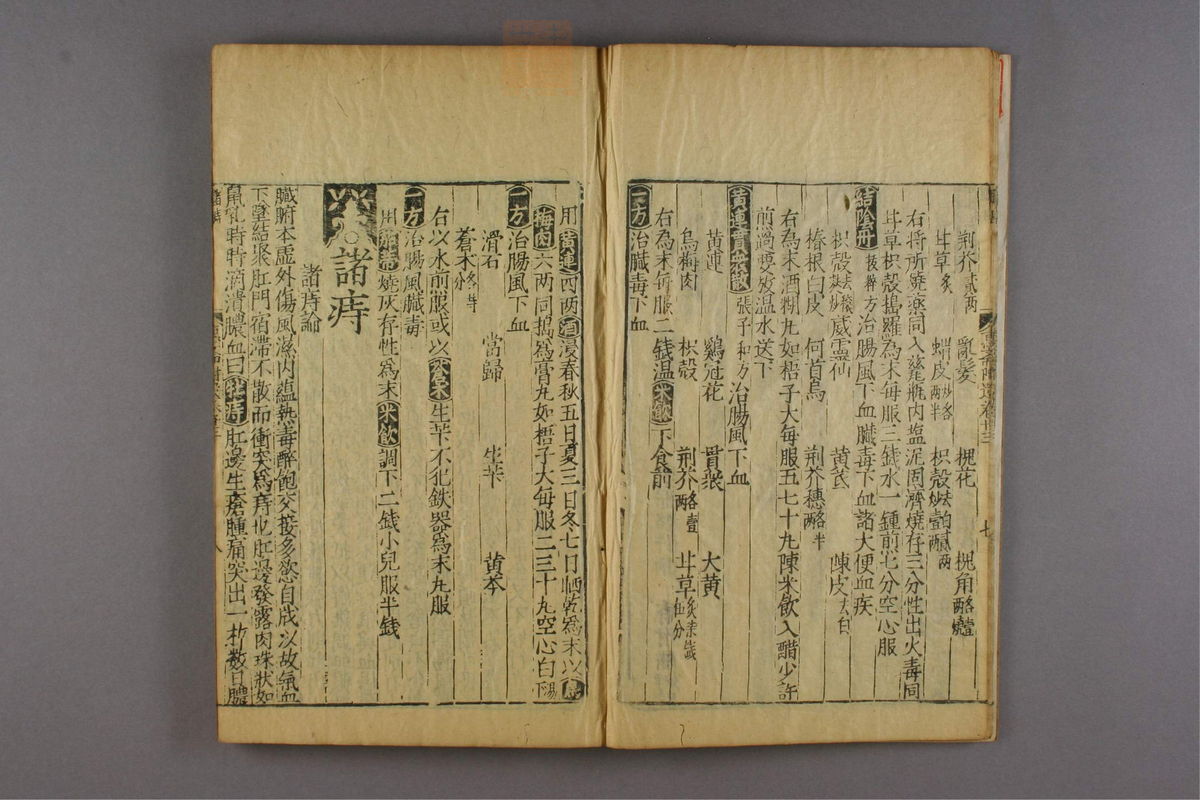 荆芥貳两 亂髮 槐花
甘草炙 蝟皮炒各两半 枳殼 槐角
右將所燒藥同入甆瓶内塩泥固濟燒存三分性出火毒同
甘草枳殼搗羅為末每服二錢水一鍾煎七分空心服
結陰丹 方治腸風下血臟毒下血諸大便血疾
枳殼 威靈仙 黄芪 陳皮去白
椿根白皮 何首烏 荆芥穗各半
右為末酒糊丸如梧子大每服五七十丸陳米飲入醋少許
煎過要放温水送下
黄連貫衆散 張子和方治腸風下血
黄連 鷄冠花 貫衆 大黄
烏梅肉 枳殼 荆芥 甘草炙
右為末每服二錢温米飲下食前
一方治臟毒下血
用黄連四两酒浸春秋五日夏三日冬七日晒乾為末以烏
梅肉六两同搗為膏丸如梧子大每服二三十丸空心白湯下
一方治腸風下血
滑石 當歸 生芐 黄芩
蒼术
右以水煎服或以蒼术生芐不犯鉄器為末丸服
一方治腸風臟毒
用 蒂燒灰存性為末米飲調下二錢小兒服半錢
諸痔
諸痔論
臟腑本虛外傷風濕内蘊熱毒醉飽交接多慾自戕以故氣血
下墜結聚肛門宿滯不散而衝突為痔也肛邊發露肉珠狀如
鼠乳時時滴漬膿血曰牡痔肛邊生瘡腫痛突出一枚數日膿
八